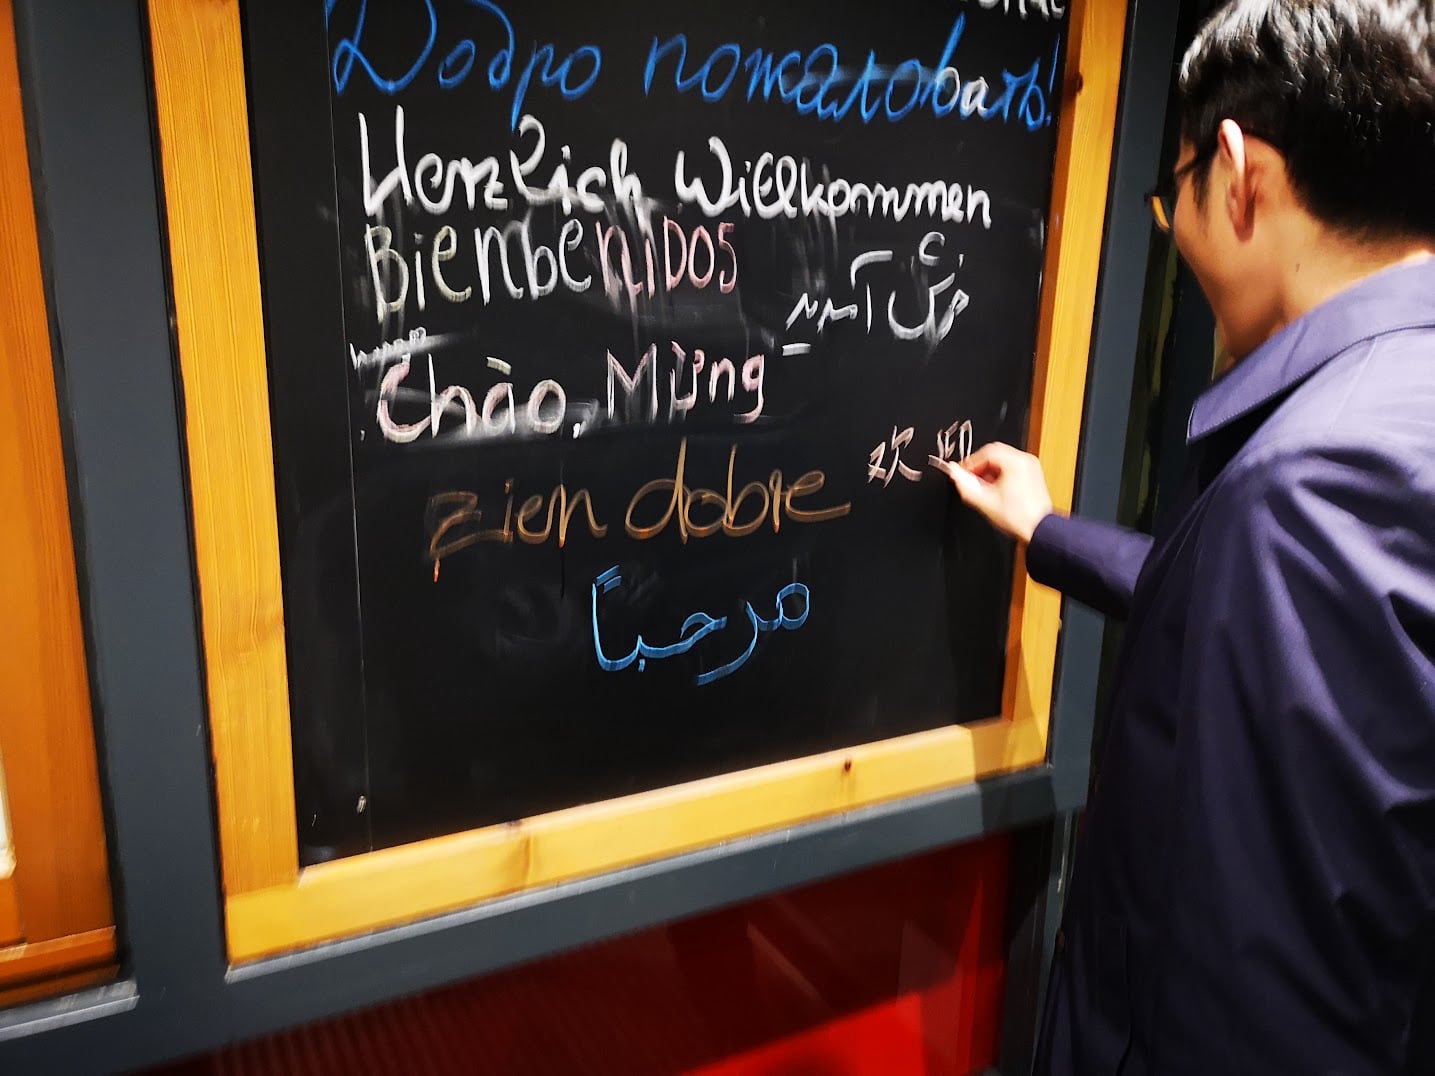 Добро пожаловать!
Herzlich Willkommen
BienbeNiDOS
Chào, Mừng
欢 迎
zien dobre
مرحباً